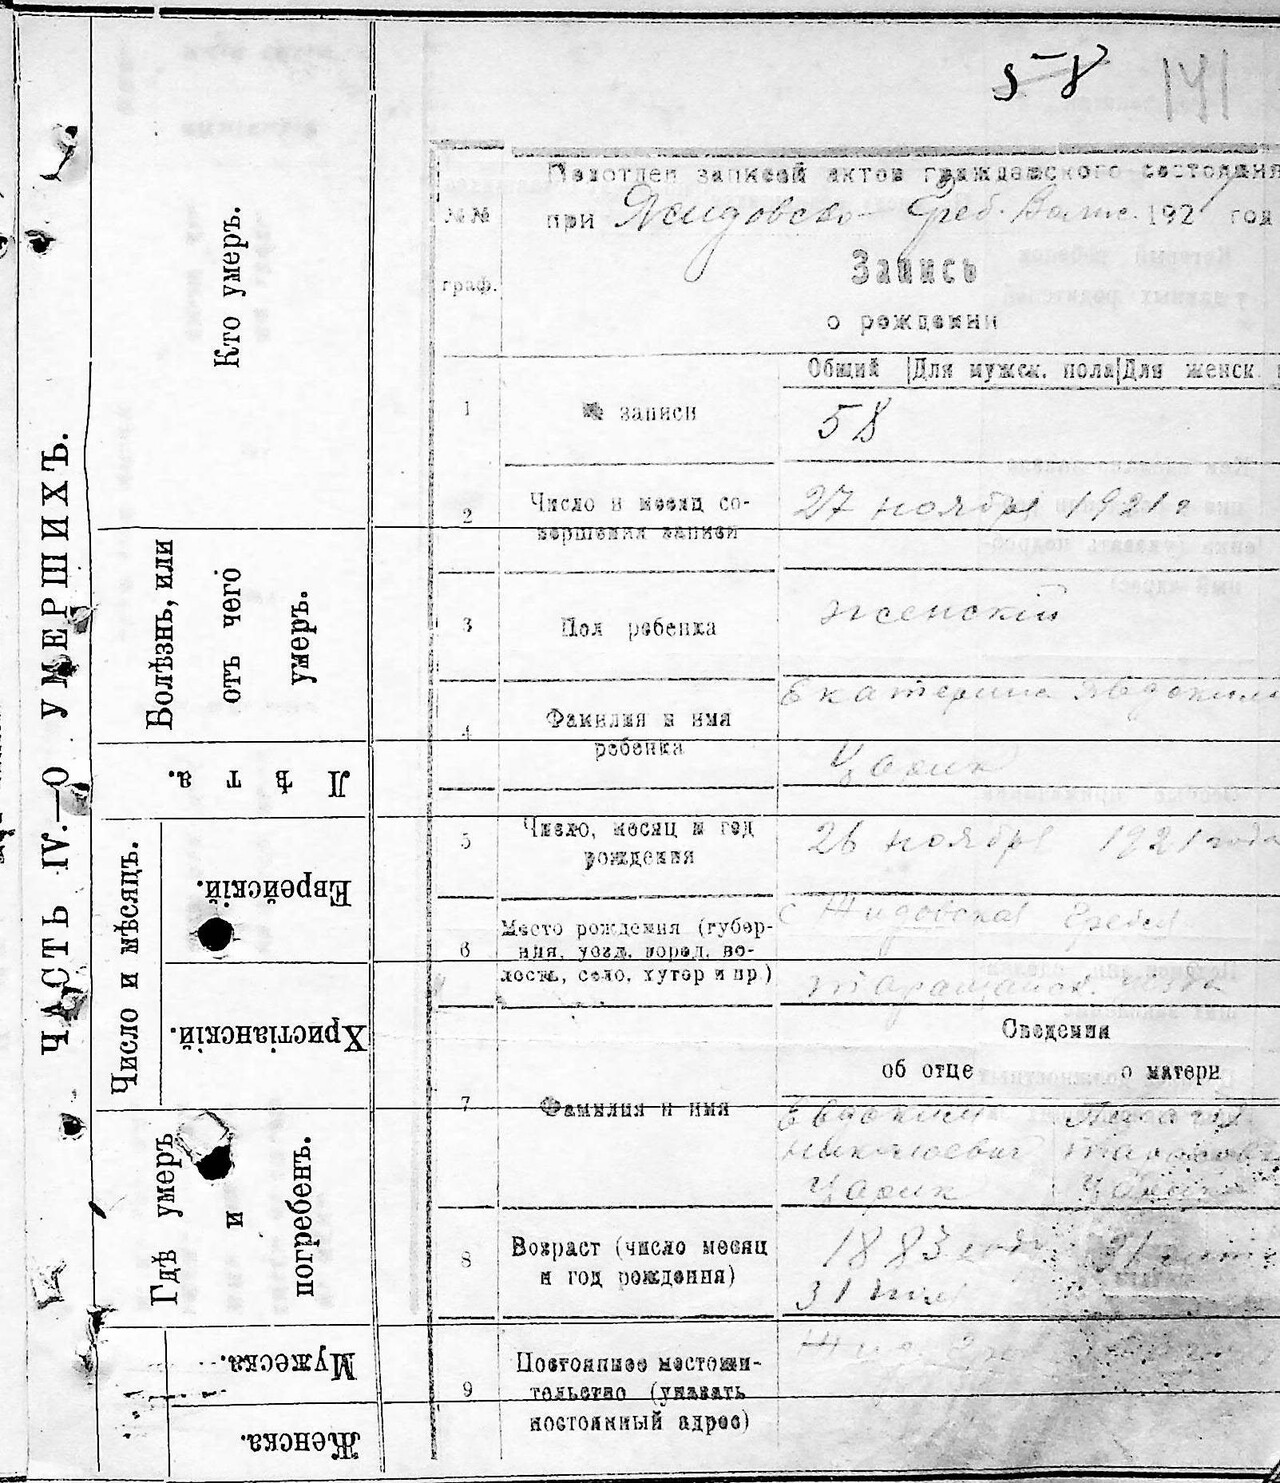 ЧАСТЬ IV.—О УМЕРШИХЪ.
Кто умеръ.
Болѣзнь, или
отъ чего
умеръ.
Лѣта.
Число и мѣсяцъ.
Еврейскій.
Христіанскій.
Гдѣ умеръ
и
погребенъ.
Мужеска.
Женска.
58 141
Подотдел записей актов гражданского состояния
при Жидовско-Греб. Вол. 192 год
№№
граф.
Запись
о рождении
Общий Для мужск. пола Для женск.
1 № записи 58
2 Число и месяц со-
вершения записи
27 ноября 1921 г
3 Пол ребенка женскій
4 Фамилия и имя
ребенка
Екатерина Явдоким
Царик
5 Число, месяц и год
рождения
26 ноября 1921 года
6 Место рождения (губер-
ния, уезд, город, во-
лость, село, хутор и пр)
с Жидовская Гребля
Таращанск. уезда
Сведения
об отце о матери
7 Фамилия и имя
Евдоким
Царик
8 Возраст (число месяц
и год рождения)
1883 года
31
9 Постоянное местожи-
тельство (указать
постоянный адрес)
Жид. Гре